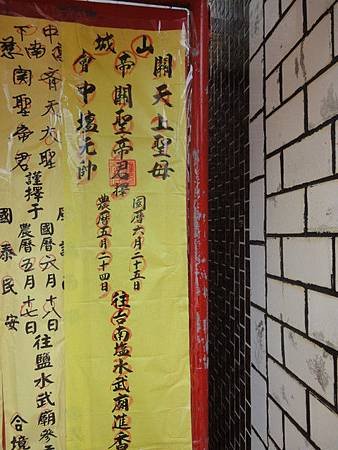 山城
關天上聖母
帝關聖帝君擇
會中壇元帥
國曆六月二十五日
農曆五月二十四日
往台南塩水武廟進香
齊天大聖
南
下
慈
關聖帝君
謹擇于
國曆六月十八日
農曆五月十七日
往鹽水武廟參
國泰民安
合境